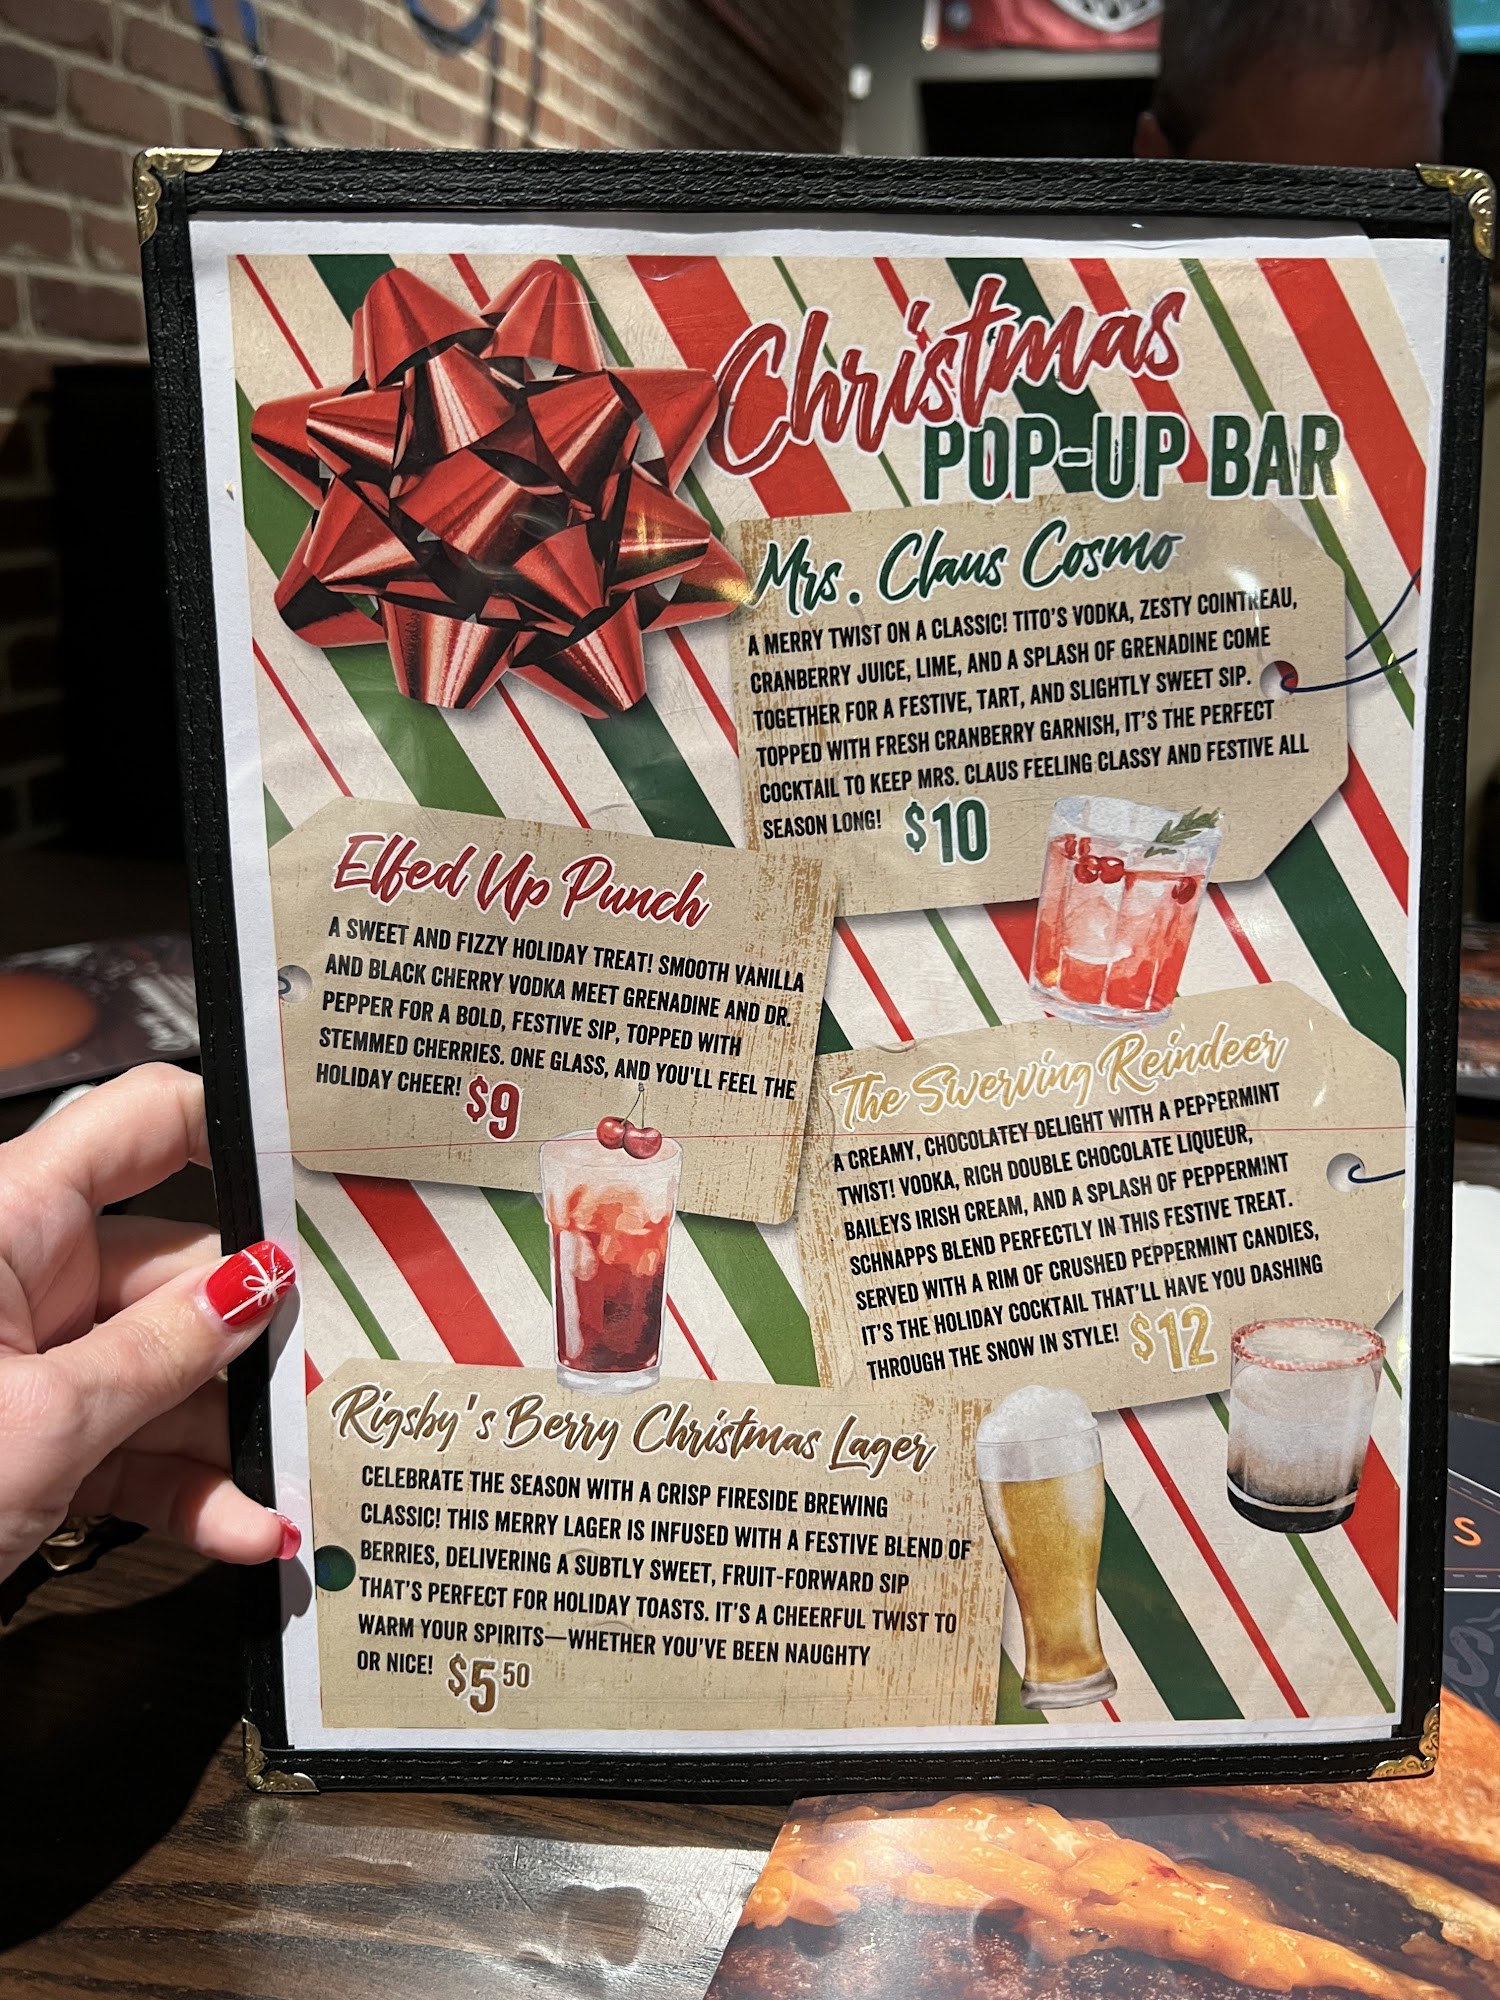 Christmas
POP-UP BAR
Mrs. Claus Cosmo
A MERRY TWIST ON A CLASSIC! TITO'S VODKA, ZESTY COINTREAU,
CRANBERRY JUICE, LIME, AND A SPLASH OF GRENADINE COME
TOGETHER FOR A FESTIVE, TART, AND SLIGHTLY SWEET SIP.
TOPPED WITH FRESH CRANBERRY GARNISH, IT'S THE PERFECT
COCKTAIL TO KEEP MRS. CLAUS FEELING CLASSY AND FESTIVE ALL
SEASON LONG! $10
Elfed Up Punch
A SWEET AND FIZZY HOLIDAY TREAT! SMOOTH VANILLA
AND BLACK CHERRY VODKA MEET GRENADINE AND DR.
PEPPER FOR A BOLD, FESTIVE SIP, TOPPED WITH
STEMMED CHERRIES. ONE GLASS, AND YOU'LL FEEL THE
HOLIDAY CHEER! $9
The Swerving Reindeer
A CREAMY, CHOCOLATEY DELIGHT WITH A PEPPERMINT
TWIST! VODKA, RICH DOUBLE CHOCOLATE LIQUEUR,
BAILEYS IRISH CREAM, AND A SPLASH OF PEPPERMINT
SCHNAPPS BLEND PERFECTLY IN THIS FESTIVE TREAT.
SERVED WITH A RIM OF CRUSHED PEPPERMINT CANDIES,
IT'S THE HOLIDAY COCKTAIL THAT'LL HAVE YOU DASHING
THROUGH THE SNOW IN STYLE! $12
Rigsby's Berry Christmas Lager
CELEBRATE THE SEASON WITH A CRISP FIRESIDE BREWING
CLASSIC! THIS MERRY LAGER IS INFUSED WITH A FESTIVE BLEND OF
BERRIES, DELIVERING A SUBTLY SWEET, FRUIT-FORWARD SIP
THAT'S PERFECT FOR HOLIDAY TOASTS. IT'S A CHEERFUL TWIST TO
WARM YOUR SPIRITS—WHETHER YOU'VE BEEN NAUGHTY
OR NICE! $5 50
S